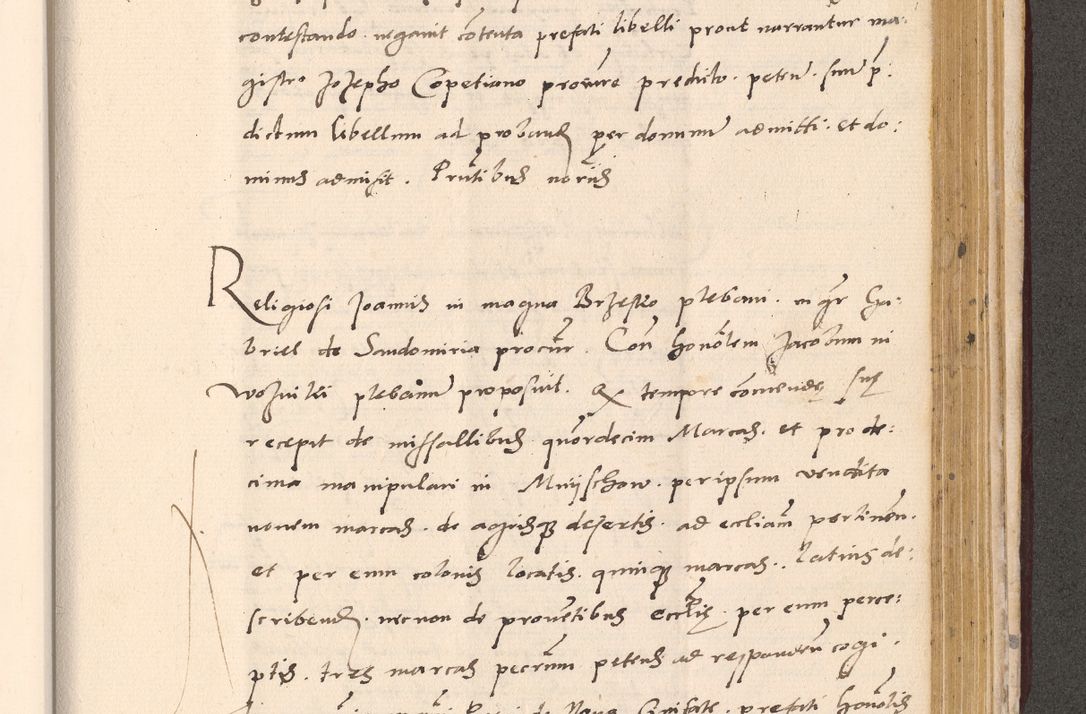 contestando negavit contenta prefati libelli prout narrantur ma:
gistro Jozepho Copetiano procure predicto petens suum p:
dictum libellum ad proband per dominum admitti. et do:
minus admisit. Pntibus noriis
Religiosi Joannis in magna Brzesko plebani. mgr Ga:
briel de Sandomiria procur. Con honolem Jacobum in
Wozniki plebanum proposuit. Ex tempore comende sue
recepit de missallibus quordecim Marcas. et pro de:
cima manipulari in Mnijschow. per ipsum vendita
novem marcas. de agrisque desertis. ad eccliam pertinen.
et per eum colonis locatis. quinque marcas. latius de:
scribend. necnon de proventibus ecclis. per eum perce:
ptis. tres marcas pecrum petens ad respondendum cogi.
de Nova Civitate. prefati honolis